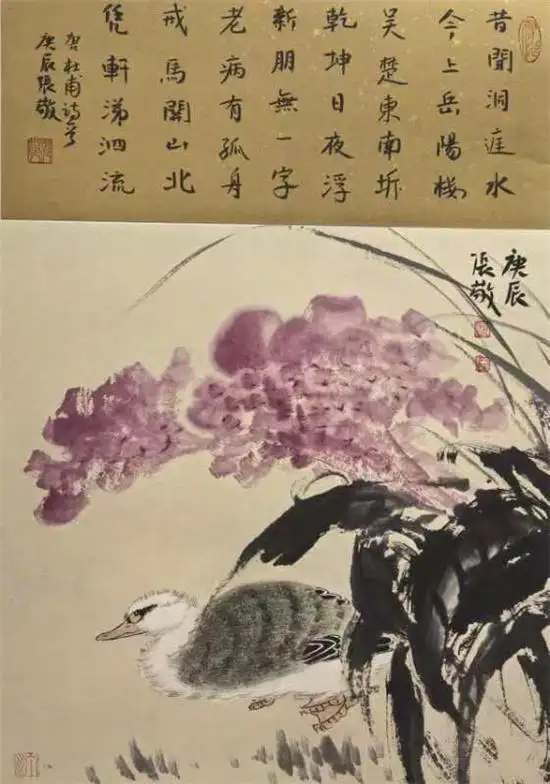 昔聞洞庭水
今上岳陽樓
吴楚東南坼
乾坤日夜浮
親朋無一字
老病有孤舟
戎馬關山北
凭軒涕泗流
唐杜甫詩
庚辰張敬
庚辰
張敬